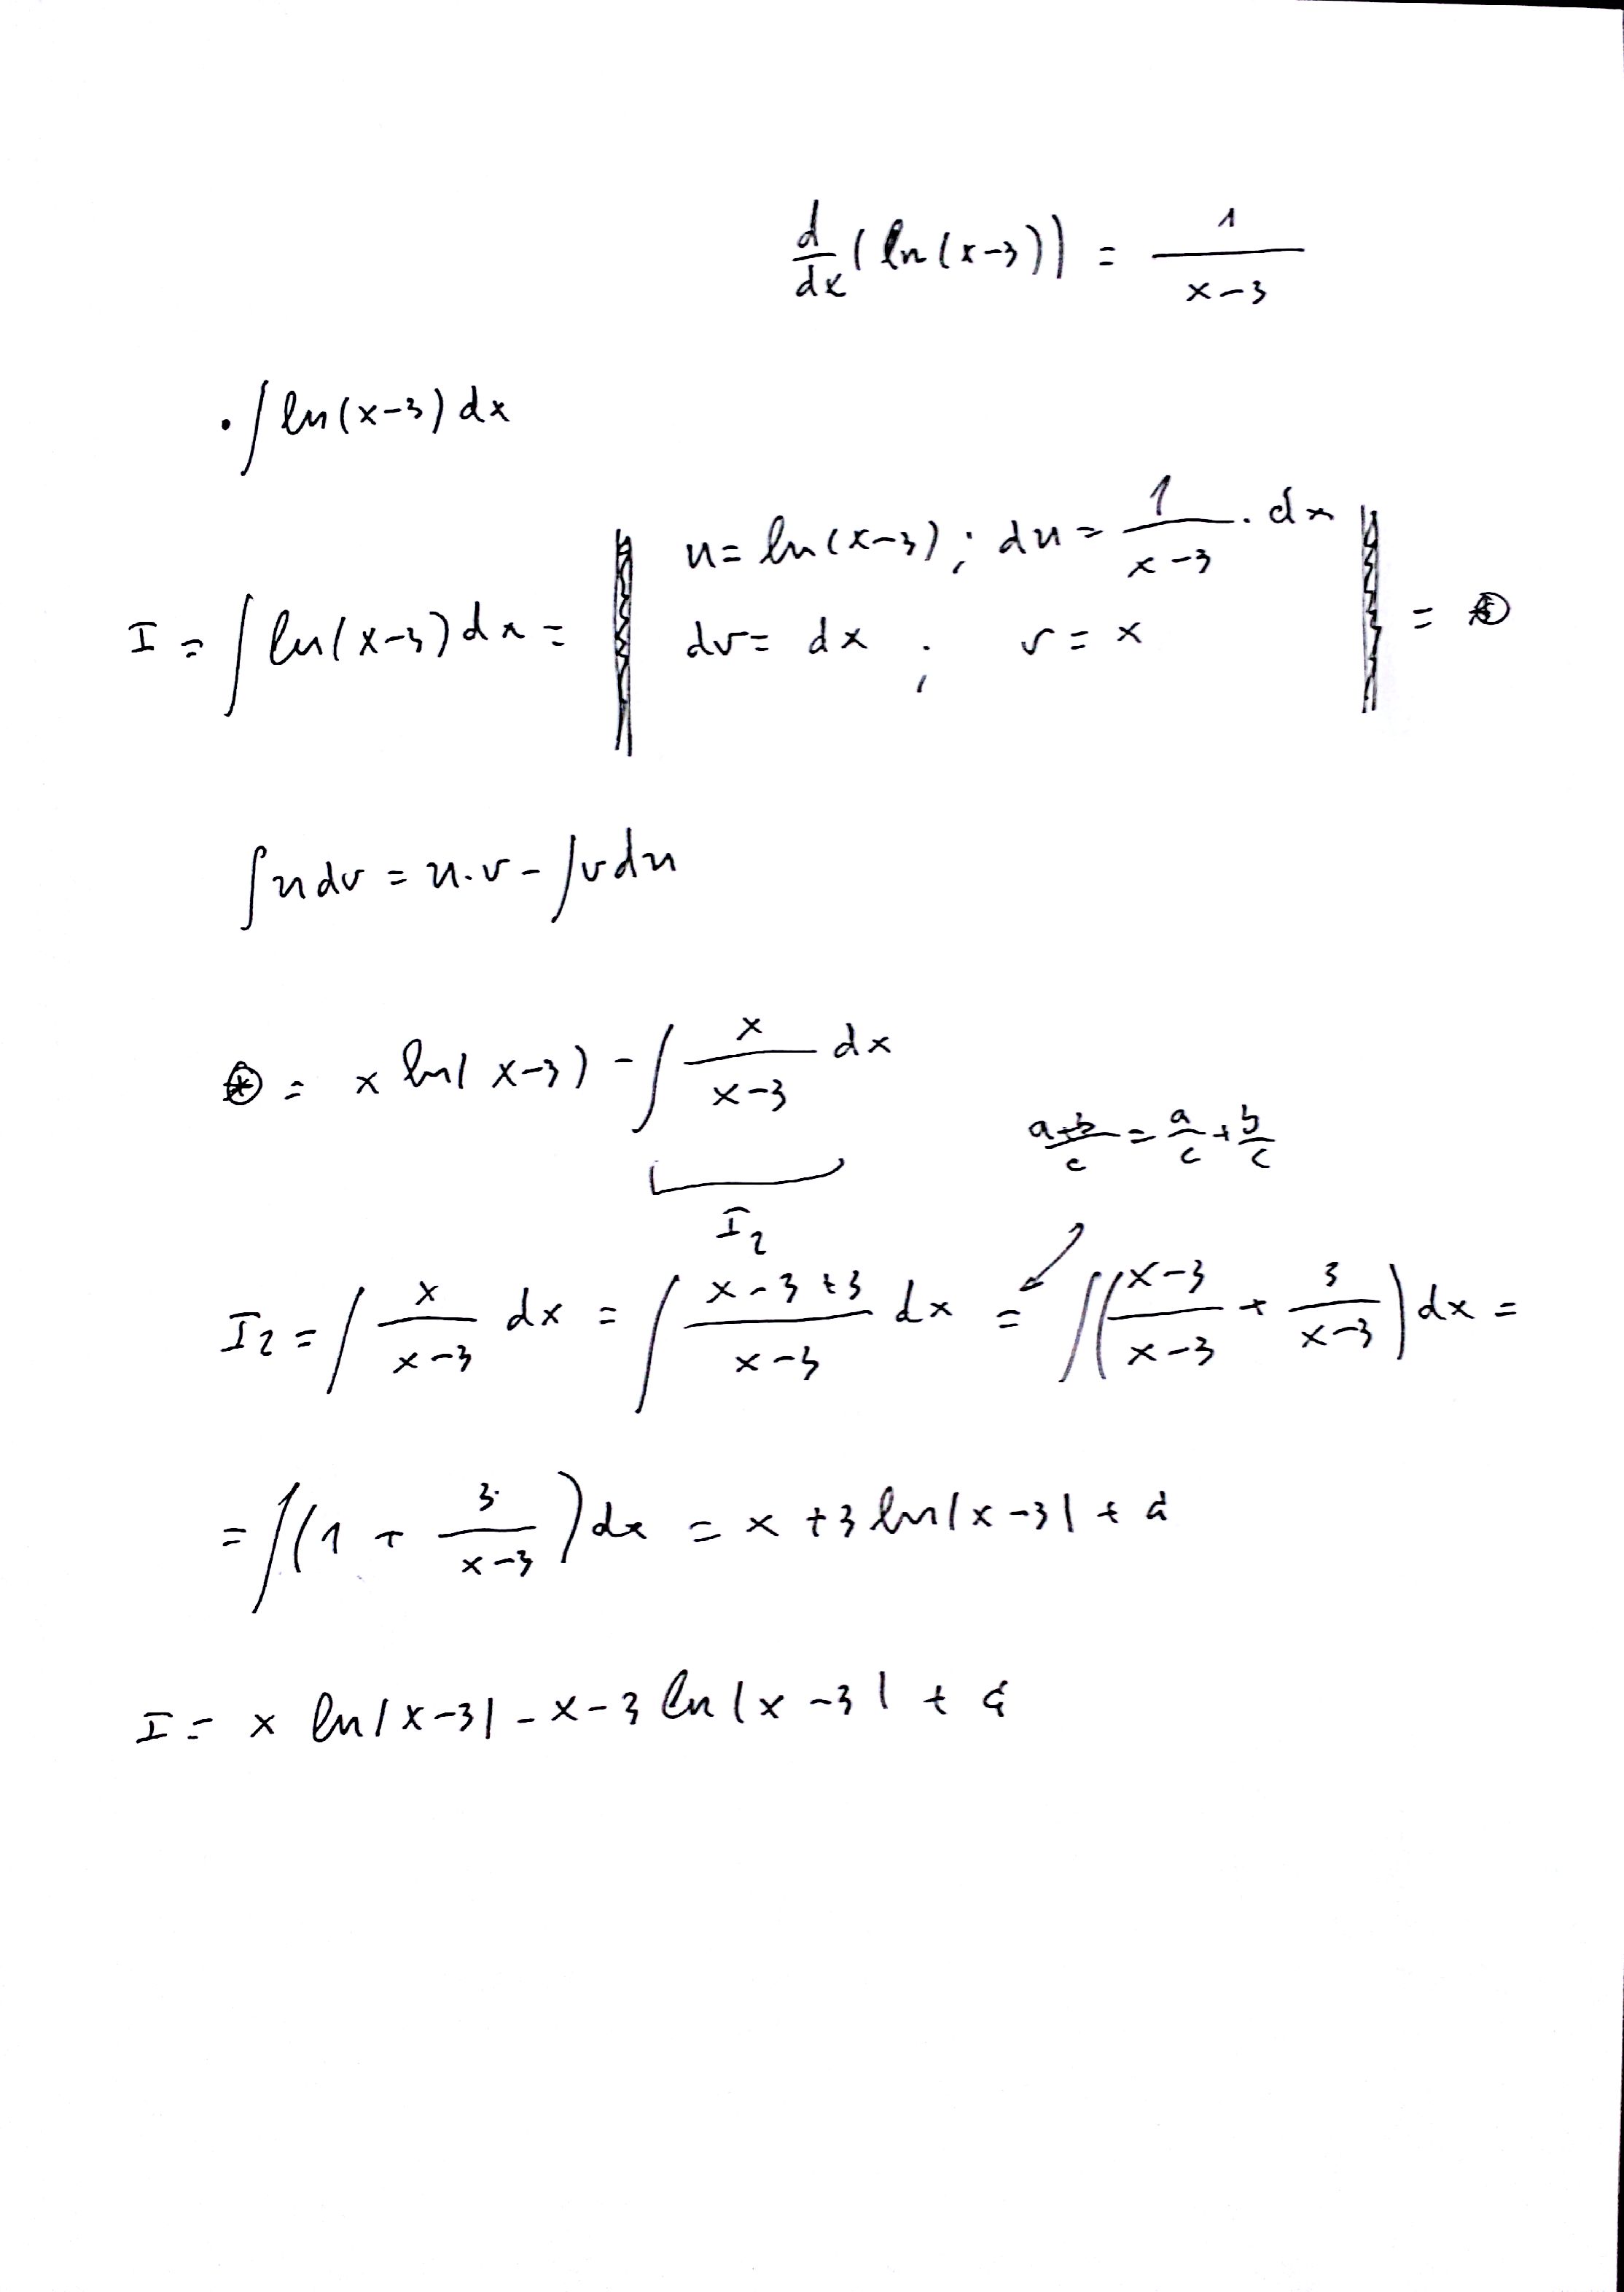 d/dx (ln(x-3)) = 1/(x-3)
• ∫ ln(x-3) dx
u = ln(x-3) ; du = 1/(x-3) · dx
I = ∫ ln(x-3) dx = | dv = dx ; v = x | = ⊛
∫ u dv = u·v - ∫ v du
⊛ = x ln(x-3) - ∫ x/(x-3) dx
(a+b)/c = a/c + b/c
I2
I2 = ∫ x/(x-3) dx = ∫ (x-3+3)/(x-3) dx = ∫ ((x-3)/(x-3) + 3/(x-3)) dx =
= ∫ (1 + 3/(x-3)) dx = x + 3 ln|x-3| + C
I = x ln|x-3| - x - 3 ln|x-3| + C